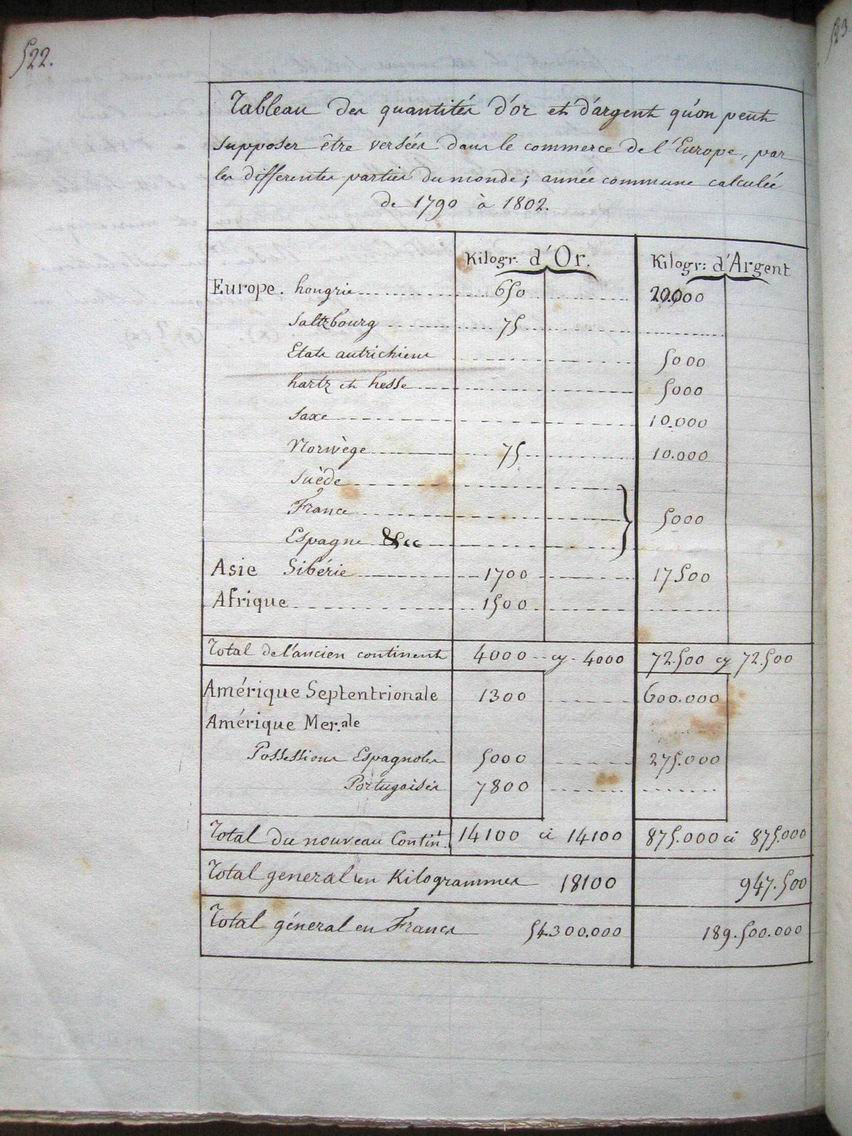 522.
Tableau des quantités d'or et d'argent qu'on peut
supposer être versées dans le commerce de l'Europe, par
les differentes parties du monde; année commune calculée
de 1790 à 1802.
Kilogr. d'Or. Kilogr: d'Argent
Europe. hongrie 650 20000
Saltzbourg 75
Etats autrichiens 5000
hartz et hesse 5000
Saxe 10.000
Norwège 75 10.000
Suède
France 5000
Espagne &cc
Asie Sibérie 1700 17500
Afrique 1500
Total de l'ancien continent 4000 cy 4000 72.500 cy 72.500
Amérique Septentrionale 1300 600.000
Amérique Mer.ale
Possessions Espagnoles 5000 275.000
Portugaises 7800
Total du nouveau Contin.t 14100 ci 14100 875.000 ci 875.000
Total general en Kilogrammes 18100 947.500
Total géneral en Francs 54.300.000 189.500.000